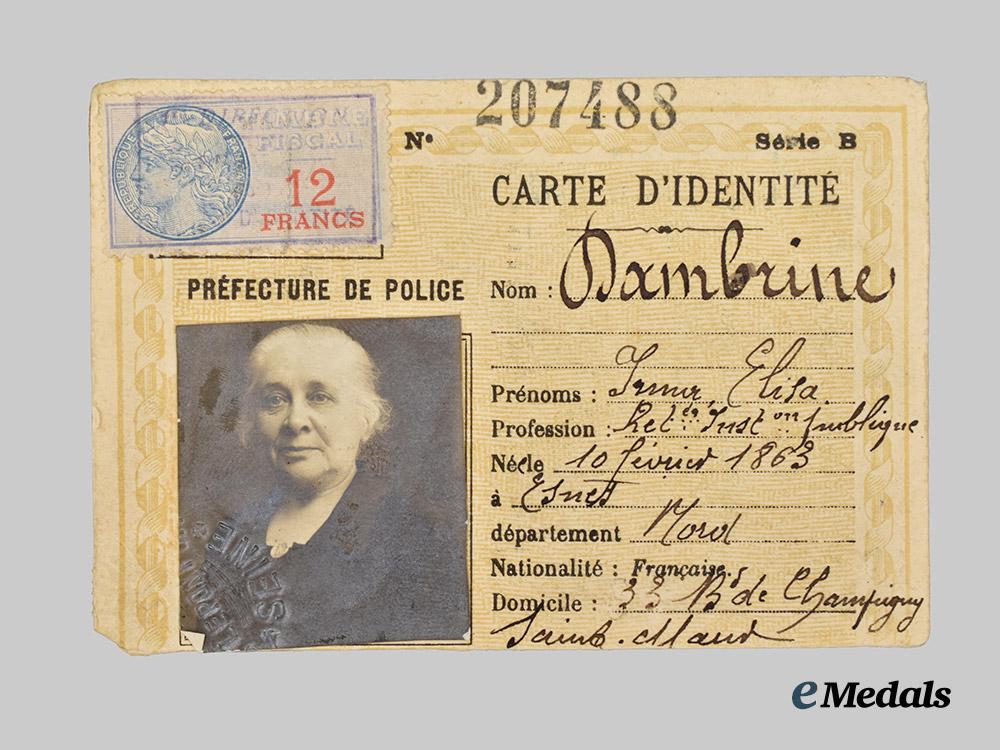 207488
N° Série B
TIMBRE
FISCAL
12
FRANCS
RÉPUBLIQUE FRANÇAISE
CARTE D'IDENTITÉ
PRÉFECTURE DE POLICE
Nom : Dambrine
Prénoms : Irma, Elisa
Profession : Retée Instion publique
Né(e le 10 février 1863
à Esnes
département Nord
Nationalité : Française.
Domicile : 33 Bd de Champigny
Saint-Maur
SEINE
eMedals